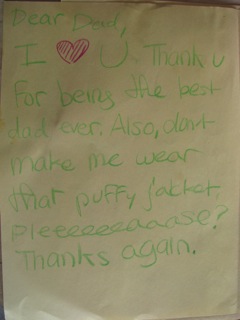 Dear Dad,
I ❤ U. Thank u
for being the best
dad ever. Also, don't
make me wear
that puffy jacket.
pleeeeeeaaase?
Thanks again.